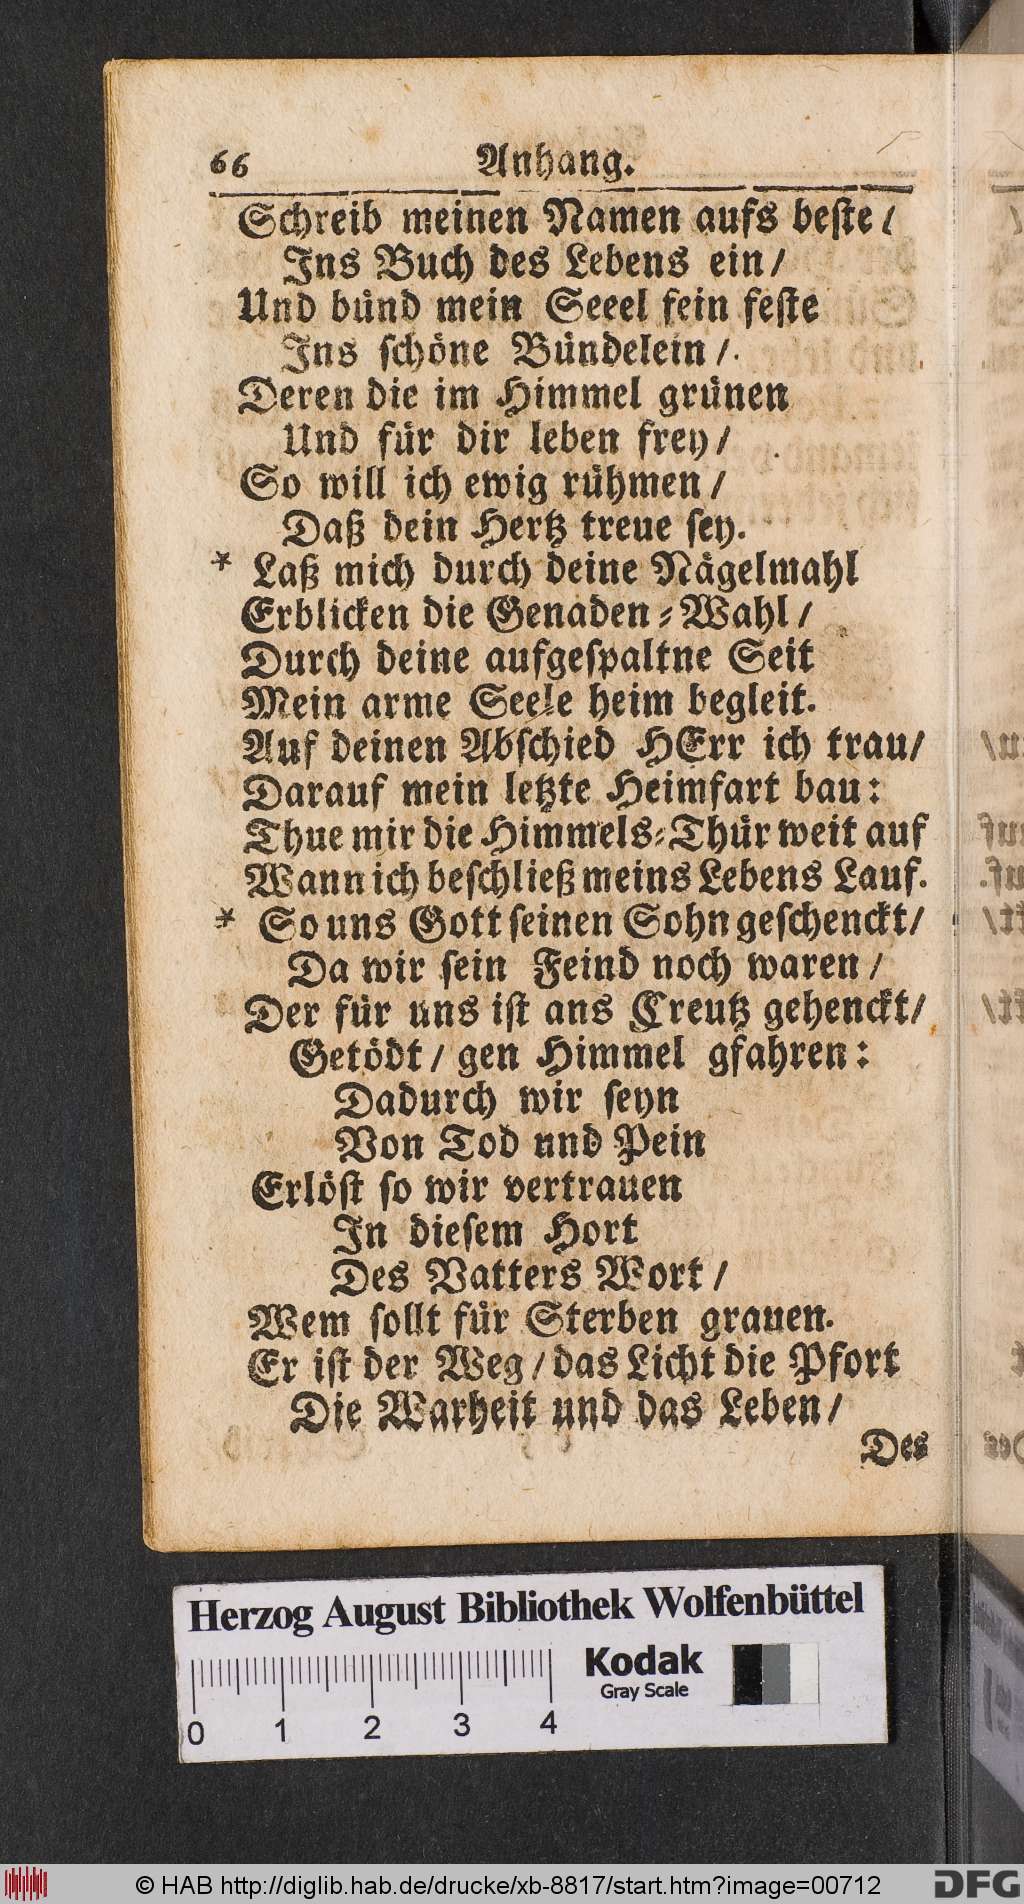 66 Anhang.
Schreib meinen Namen aufs beste /
Ins Buch des Lebens ein /
Und bünd mein Seeel fein feste
Ins schöne Bündelein /.
Deren die im Himmel grünen
Und für dir leben frey /
So will ich ewig rühmen /
Daß dein Hertz treue sey.
* Laß mich durch deine Nägelmahl
Erblicken die Genaden-Wahl /
Durch deine aufgespaltne Seit
Mein arme Seele heim begleit.
Auf deinen Abschied HErr ich trau /
Darauf mein letzte Heimfart bau:
Thue mir die Himmels-Thür weit auf
Wann ich beschließ meins Lebens Lauf.
* So uns Gott seinen Sohn geschenckt /
Da wir sein Feind noch waren /
Der für uns ist ans Creutz gehenckt /
Getödt / gen Himmel gfahren:
Dadurch wir seyn
Von Tod und Pein
Erlöst so wir vertrauen
In diesem Hort
Des Vatters Wort /
Wem sollt für Sterben grauen.
Er ist der Weg / das Licht die Pfort
Die Warheit und das Leben /
Des
Herzog August Bibliothek Wolfenbüttel
Kodak
Gray Scale
0 1 2 3 4
© HAB http://diglib.hab.de/drucke/xb-8817/start.htm?image=00712
DFG